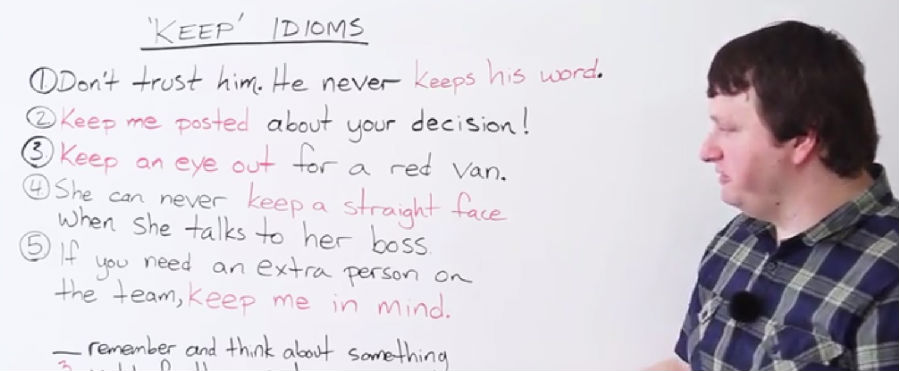 'KEEP' IDIOMS
① Don't trust him. He never keeps his word.
② Keep me posted about your decision!
③ Keep an eye out for a red van.
④ She can never keep a straight face
when she talks to her boss.
⑤ If you need an extra person on
the team, keep me in mind.
— remember and think about something
3